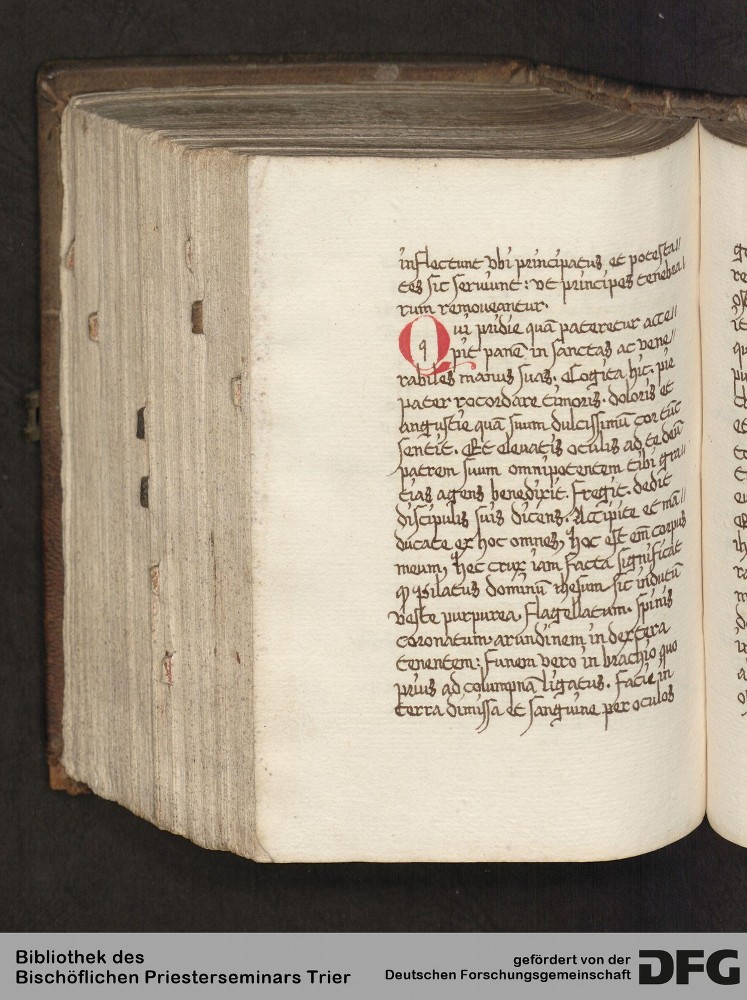 inflectunt vbi principatus et potesta//
tes sic seruiunt: vt principes tenebra/
rum remoueantur.
Qui pridie quā pateretur acce//
q
pit panē in sanctas ac vene//
rabiles manus suas. Cogita hic. pie
pater recordare timoris. doloris et
angustie quā suum dulcissimū cor tūc
sentit. Et eleuatis oculis ad te deū
patrem suum omnipotentem tibi gra//
tias agens benedixit. fregit. dedit
discipulis suis dicens. Accipite et mā//
ducate ex hoc omnes, hoc est em̄ corpus
meum, hec crux iam facta significat
pilatus dominū ihesum sic indutū
veste purpurea. flagellatum. spinis
coronatum. arundinem in dextera
tenentem: funem vero in brachio quo
prius ad columpnā ligatus. facie in
terra dimissa et sanguine per oculos
Bibliothek des
Bischöflichen Priesterseminars Trier
gefördert von der
Deutschen Forschungsgemeinschaft
DFG